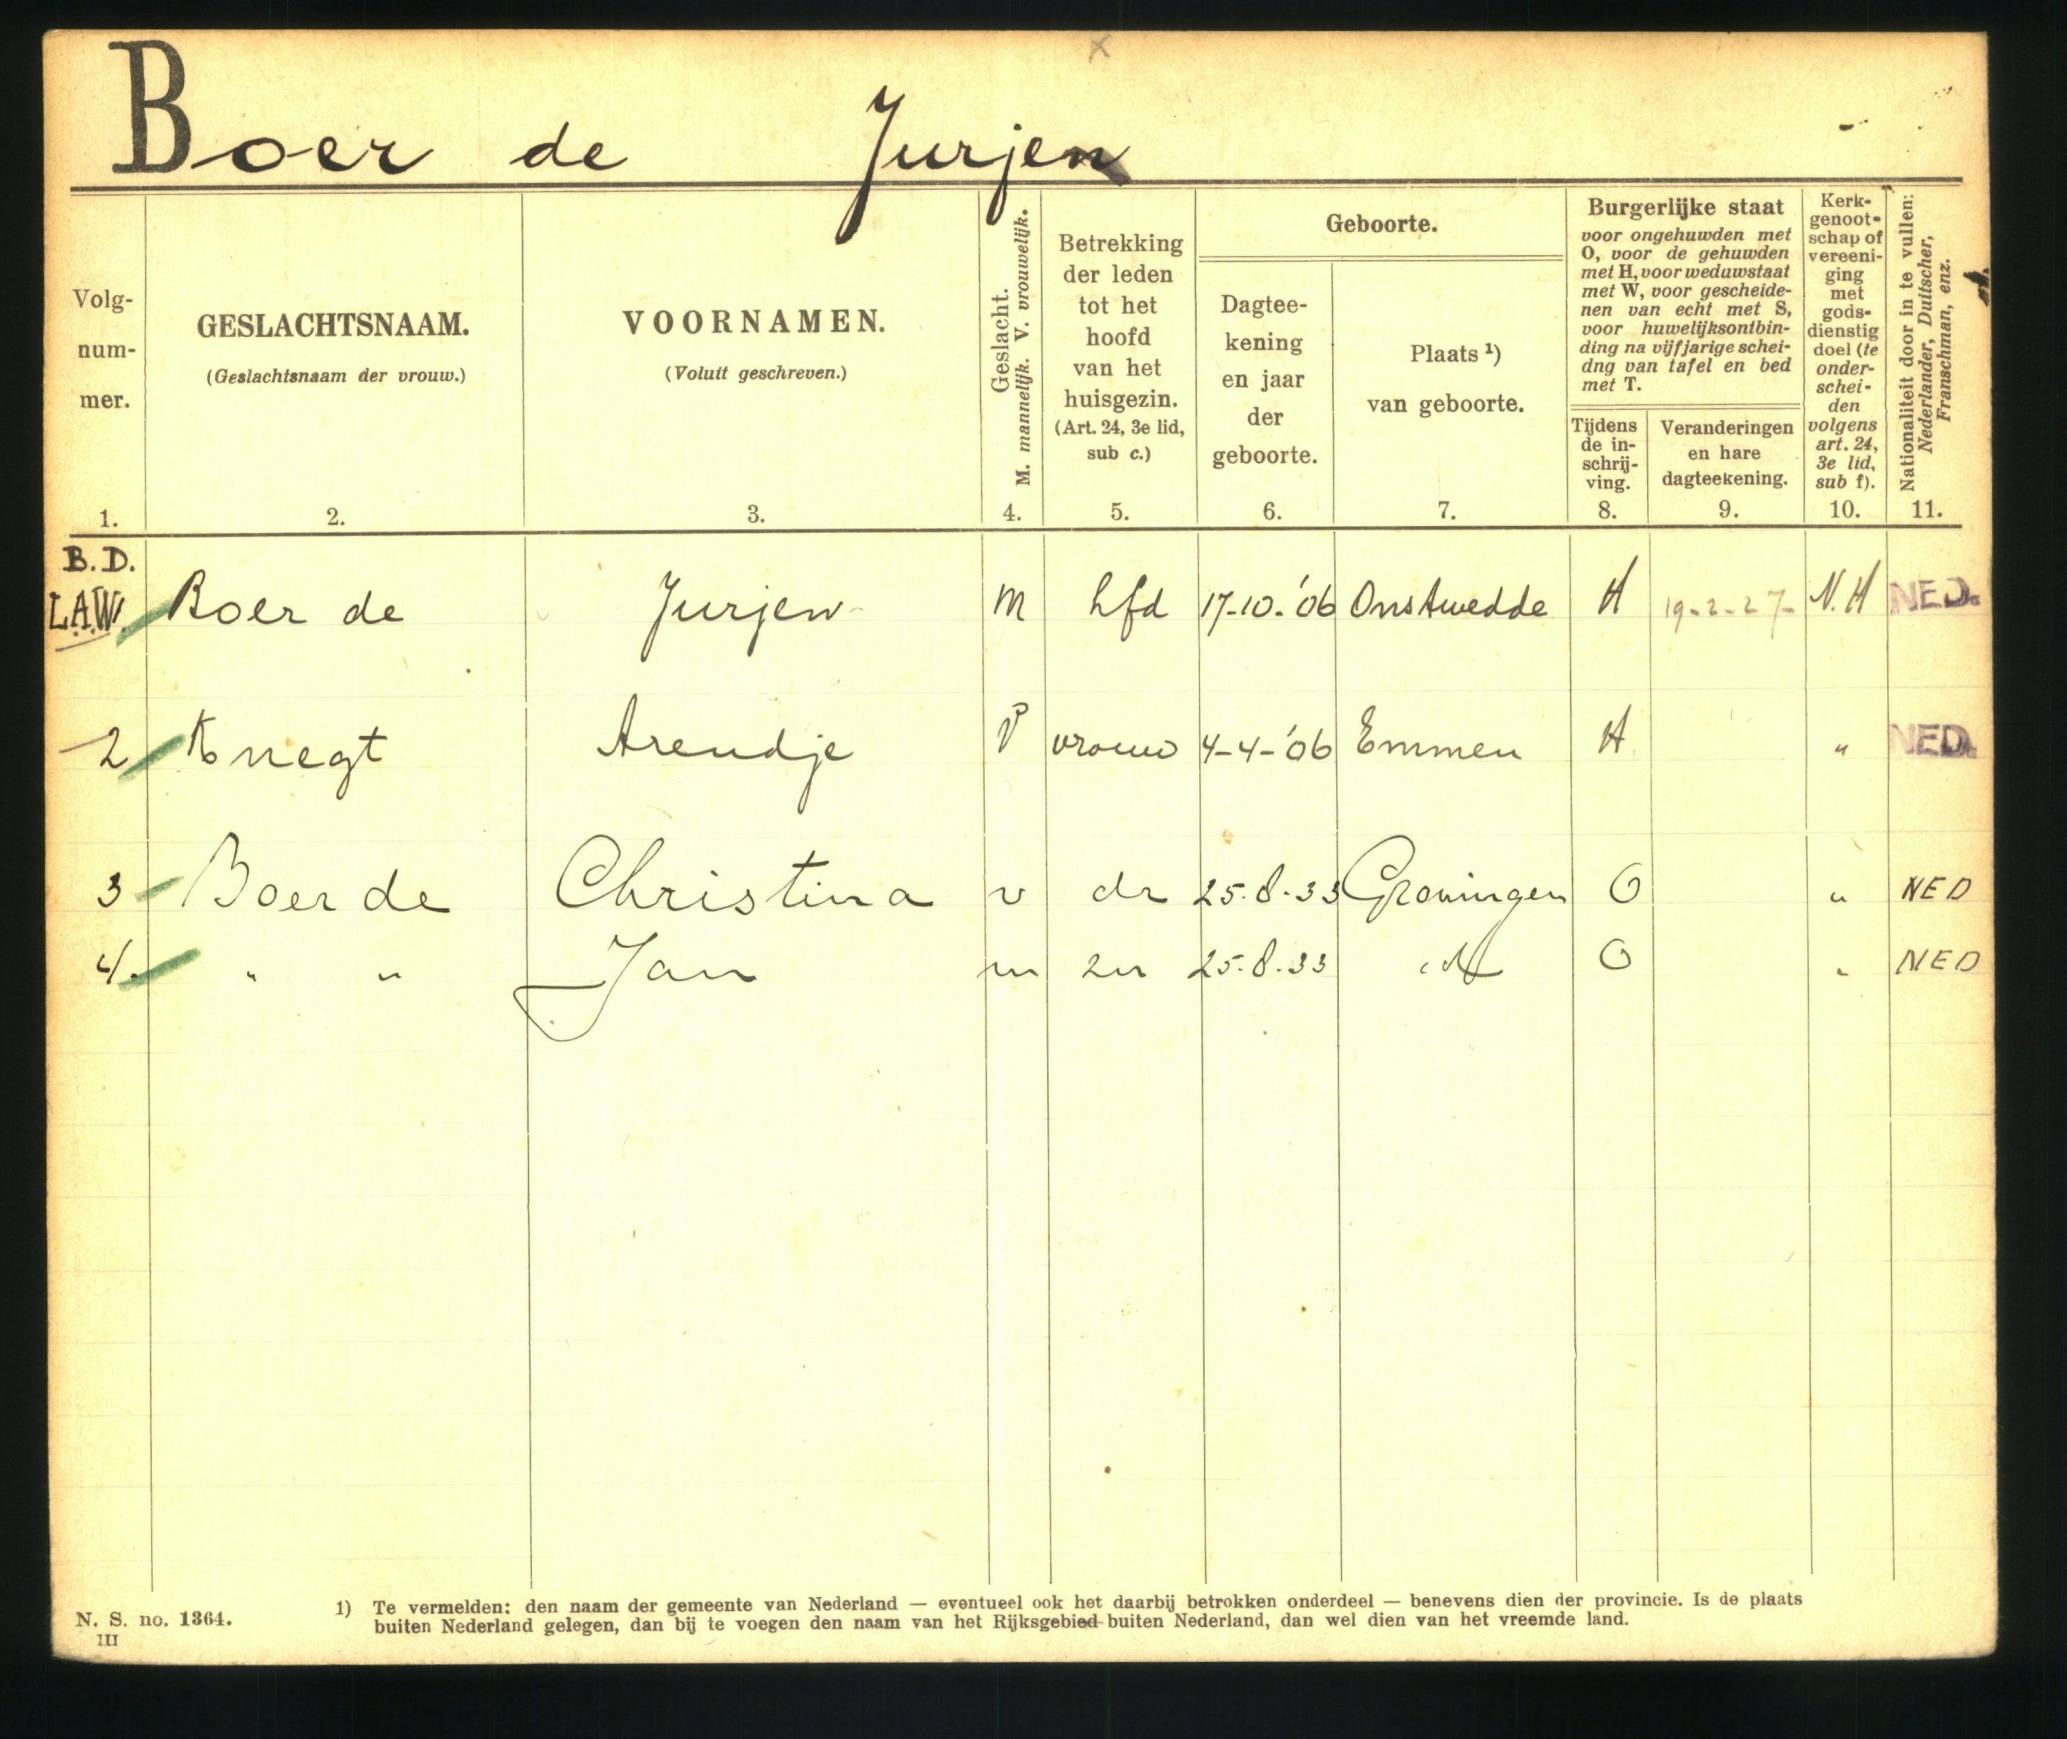 Boer de Jurjen
Volg-
num-
mer.
1.
GESLACHTSNAAM.
(Geslachtsnaam der vrouw.)
2.
VOORNAMEN.
(Voluit geschreven.)
3.
Geslacht.
M. mannelijk. V. vrouwelijk.
4.
Betrekking
der leden
tot het
hoofd
van het
huisgezin.
(Art. 24, 3e lid,
sub c.)
5.
Geboorte.
Dagtee-
kening
en jaar
der
geboorte.
6.
Plaats 1)
van geboorte.
7.
Burgerlijke staat
voor ongehuwden met
O, voor de gehuwden
met H, voor weduwstaat
met W, voor gescheide-
nen van echt met S,
voor huwelijksontbin-
ding na vijfjarige schei-
dng van tafel en bed
met T.
Tijdens
de in-
schrij-
ving.
8.
Veranderingen
en hare
dagteekening.
9.
Kerk-
genoot-
schap of
vereeni-
ging
met
gods-
dienstig
doel (te
onder-
schei-
den
volgens
art. 24,
3e lid,
sub f).
10.
Nationaliteit door in te vullen:
Nederlander, Duitscher,
Franschman, enz.
11.
B.D.
L.A.W. Boer de Jurjen M hfd 17-10-'06 Onstwedde H 19-2-27- N.H NED.
2 Knegt Arendje V vrouw 4-4-'06 Emmen H " NED.
3 Boer de Christina v dr 25.8.33 Groningen O " NED
4. " " Jan m zn 25.8.33 O " NED
N. S. no. 1364.
III
1) Te vermelden: den naam der gemeente van Nederland — eventueel ook het daarbij betrokken onderdeel — benevens dien der provincie. Is de plaats
buiten Nederland gelegen, dan bij te voegen den naam van het Rijksgebied buiten Nederland, dan wel dien van het vreemde land.